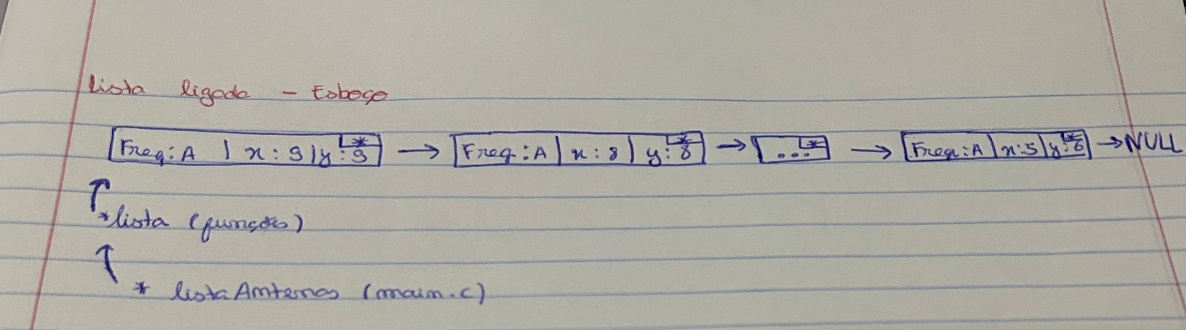 Lista ligada - Esboço
Freq: A | x: 9 | y: 9 * → Freq: A | x: 8 | y: 8 * → ... * → Freq: A | x: 5 | y: 6 * → NULL
*lista (funções)
* listaAntenas (main.c)